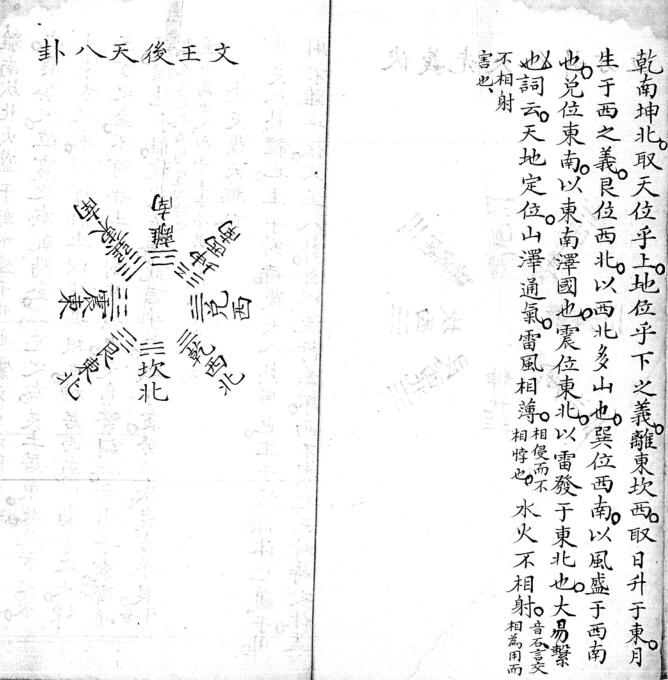 乾南坤北。取天位乎上。地位乎下之義。離東坎西。取日升于東。月
生于西之義。艮位西北。以西北多山也。巽位西南。以風盛于西南
也。兌位東南。以東南澤國也。震位東北。以雷發于東北也。大易繫
也詞云。天地定位。山澤通氣。雷風相薄。相侵而不相悖也。水火不相射。音石言交相為用而
不相射
害也、
文王後天八卦
離南
坤西南
兌西
乾西北
坎北
艮東北
震東
巽東南